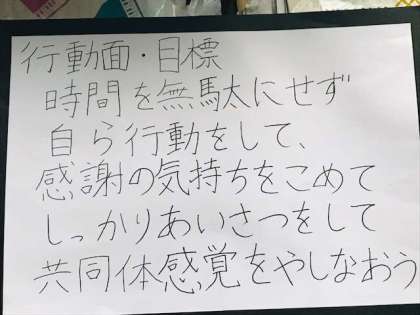 行動面・目標
時間を無駄にせず
自ら行動をして、
感謝の気持ちをこめて
しっかりあいさつをして
共同体感覚をやしなおう